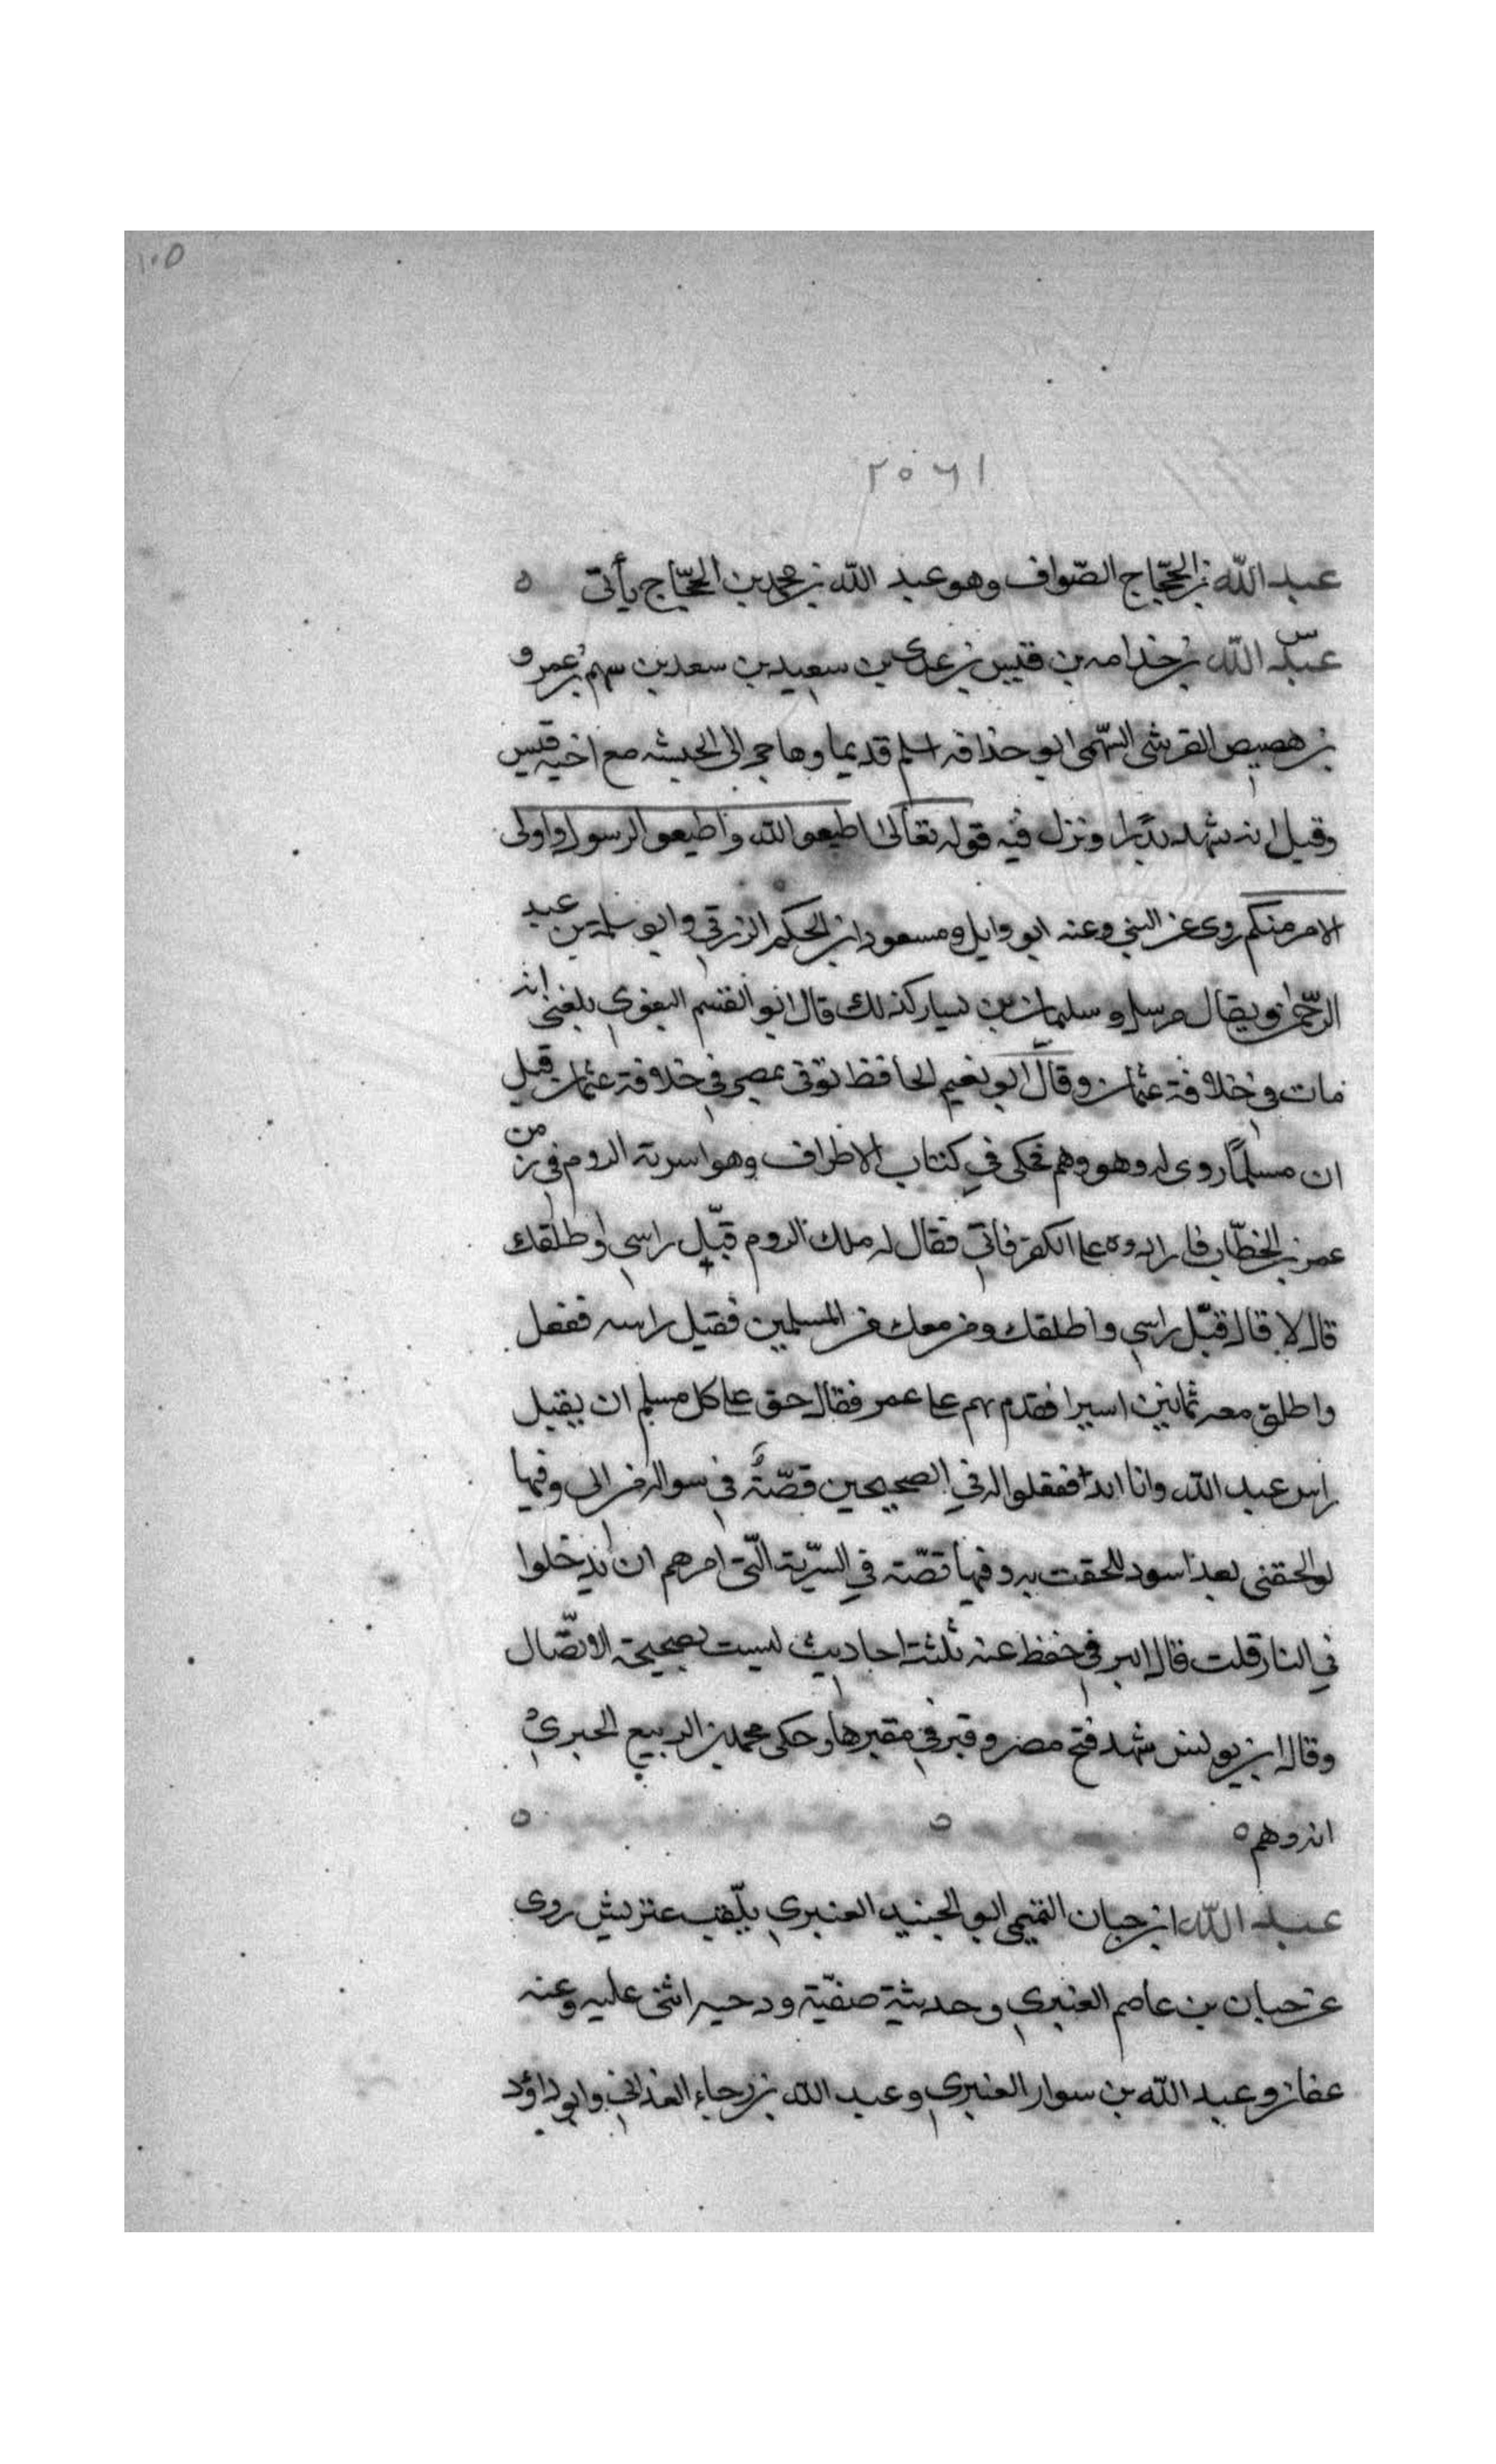 ١٠٥
٢٠٦١
عبد الله بن الحجّاج الصّواف وهو عبد الله بن محمد بن الحجّاج يأتى ه
س
عبد الله بن حذامه بن قيس بن عدى بن سعيد بن سعد بن سهم بن عمرو
بن هصيص القرشى السّهمى ابو حذافه اسلم قديما وهاجر الى الحبشه مع اخيه قيس
وقيل انه شهد بدرا ونزل فيه قوله تعالى اطيعوا الله واطيعوا الرسول واولى
الامر منكم روى عن النبي وعنه ابو وايل ومسعود ابن الحكم الزرقي وابو سلمة بن عبد
الرحمن ويقال مرسل وسليمان بن يسار كذلك قال ابو القسم البغوي بلغنى انه
مات في خلافة عثمان وقال ابو نعيم الحافظ توفى بمصر في خلافة عثمان قيل
ان مسلمًا روى له وهو وهم حكى في كتاب الاطراف وهو اسرته الروم في زمن
عمر بن الخطّاب فارادوه على الكفر فابى فقال له ملك الروم قبّل راسى اطلقك
قال لا قال قبّل راسي واطلقك ومن معك من المسلمين فقبل راسه ففعل
واطلق معه ثمانين اسيرا فقدم بهم على عمر فقال حق على كل مسلم ان يقبل
راس عبد الله وانا ابدا ففعلوا له في الصحيحين قصّة في سواله من ابى وفيها
لو الحقنى بعبد اسود للحقت به وفيها قصّة في السّرية الّتى امرهم ان يدخلوا
في النار قلت قال البرقي حفظ عنه ثلثة احاديث ليست بصحيحة الاتصّال
وقال ابن يونس شهد فتح مصر وقبر في مقبرها وحكى محمد بن الربيع الجيري
انه وهم ه ه ه
عبد الله ابن حبان التميمى ابو الجنيد العنبري يلّقب عتريش روى
عن حبان بن عاصم العنبري وحديثة صفيّة ودحيه اثنى عليه وعنه
عفان وعبد الله بن سوار العنبري وعبد الله بن رجاء الغدانى وابو داؤد